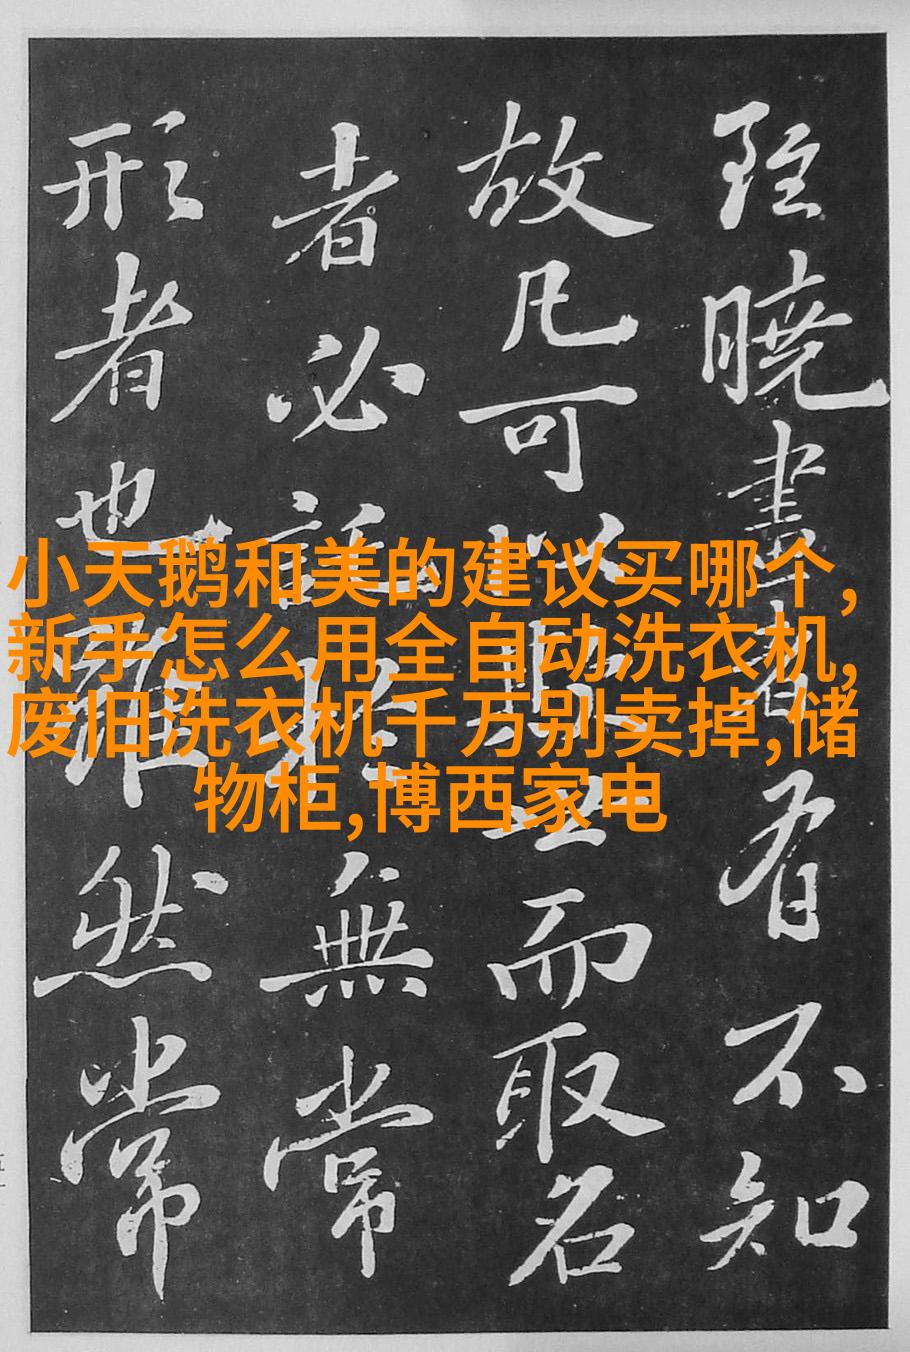 雖曉畫者有不知
故凡可以欺世而取名
者必託於無常
形者也雖然常
小天鹅和美的建议买哪个,
新手怎么用全自动洗衣机,
废旧洗衣机千万别卖掉,储
物柜,博西家电